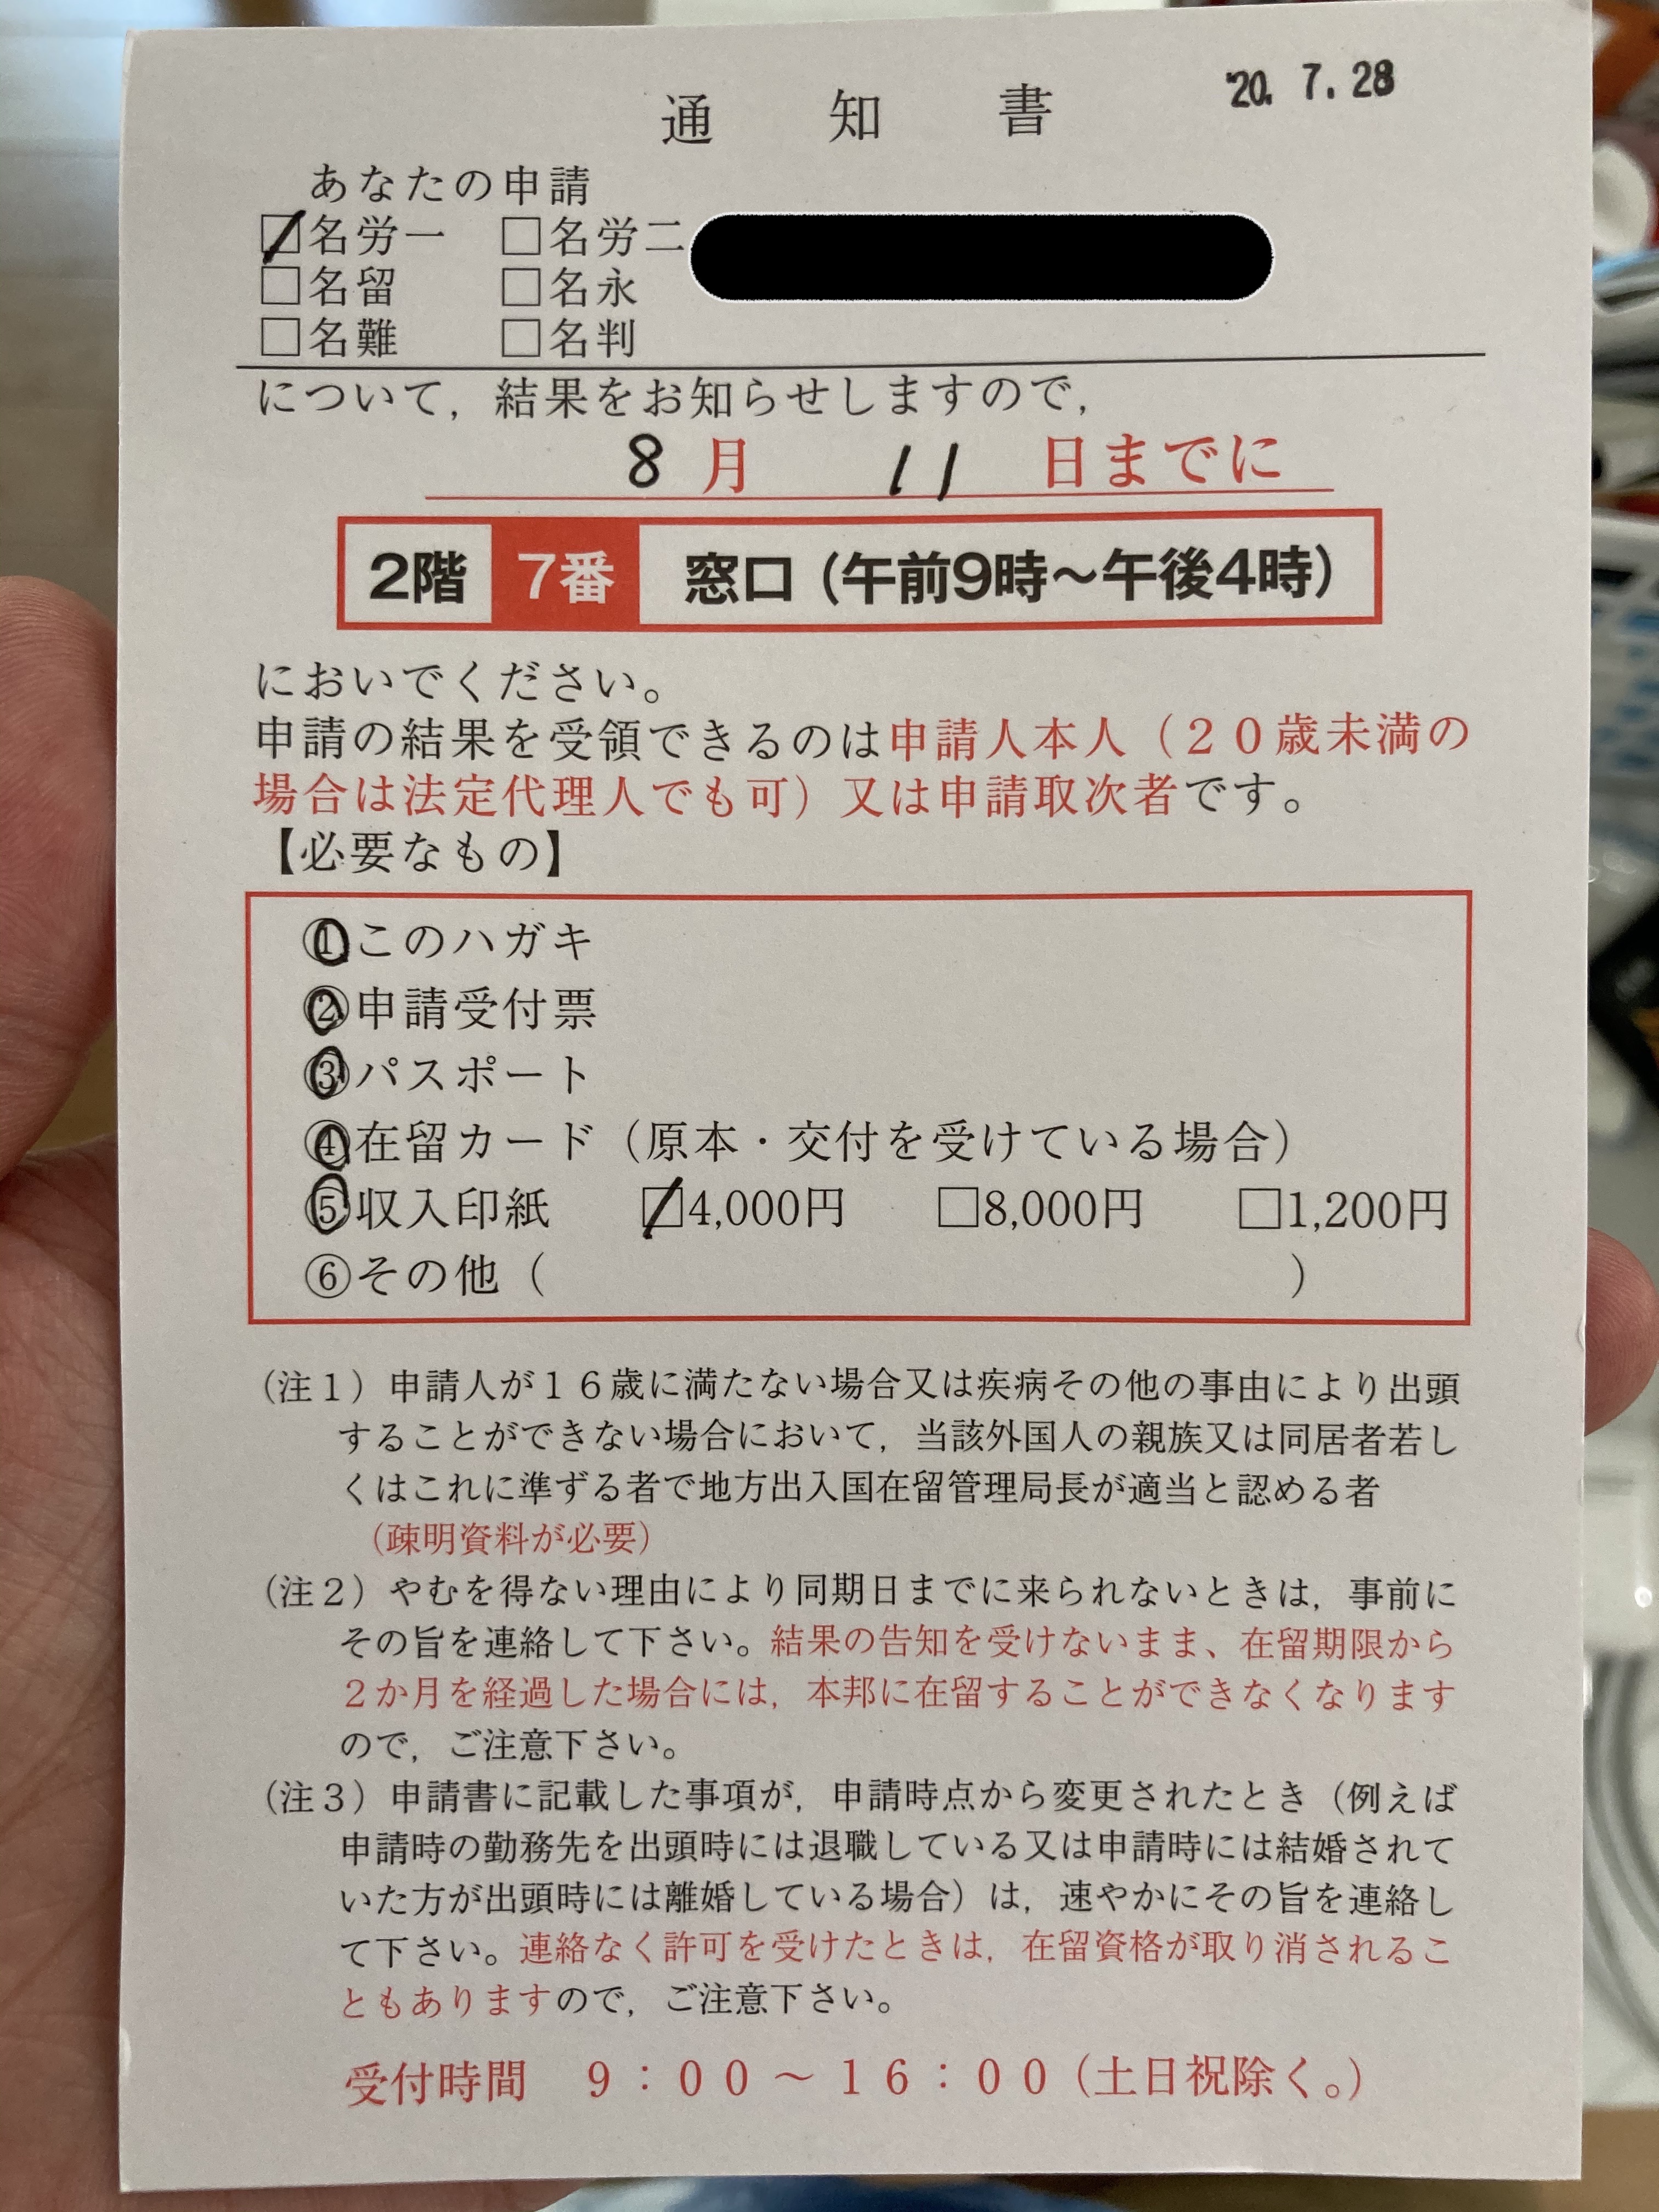 通知書 '20. 7. 28
あなたの申請
☑名労一 □名労二
□名留 □名永
□名難 □名判
について，結果をお知らせしますので，
8月 11 日までに
2階 7番 窓口（午前9時～午後4時）
においでください。
申請の結果を受領できるのは申請人本人（２０歳未満の
場合は法定代理人でも可）又は申請取次者です。
【必要なもの】
①このハガキ
②申請受付票
③パスポート
④在留カード（原本・交付を受けている場合）
⑤収入印紙 ☑4,000円 □8,000円 □1,200円
⑥その他（ ）
（注１）申請人が１６歳に満たない場合又は疾病その他の事由により出頭
することができない場合において，当該外国人の親族又は同居者若し
くはこれに準ずる者で地方出入国在留管理局長が適当と認める者
（疎明資料が必要）
（注２）やむを得ない理由により同期日までに来られないときは，事前に
その旨を連絡して下さい。結果の告知を受けないまま、在留期限から
２か月を経過した場合には，本邦に在留することができなくなります
ので，ご注意下さい。
（注３）申請書に記載した事項が，申請時点から変更されたとき（例えば
申請時の勤務先を出頭時には退職している又は申請時には結婚されて
いた方が出頭時には離婚している場合）は，速やかにその旨を連絡し
て下さい。連絡なく許可を受けたときは，在留資格が取り消されるこ
ともありますので，ご注意下さい。
受付時間 ９：００～１６：００（土日祝除く。）